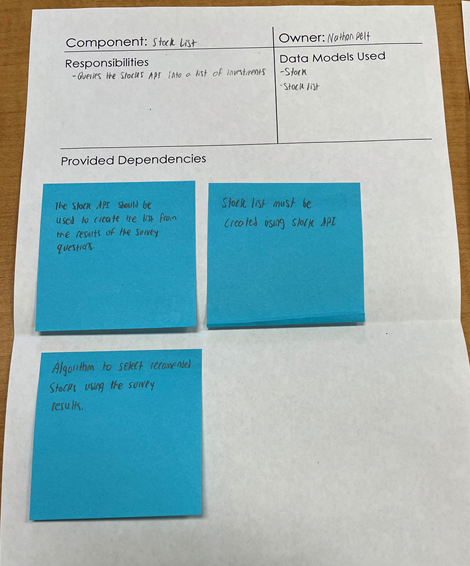 Component: Stock List
Owner: Nathan Pelt
Responsibilities
- Queries the Stocks API into a list of investments
Data Models Used
- Stock
- Stock list
Provided Dependencies
The Stock API should be
used to create the list from
the results of the survey
questions
Stock list must be
created using Stock API
Algorithm to select recomended
Stocks using the survey
results.